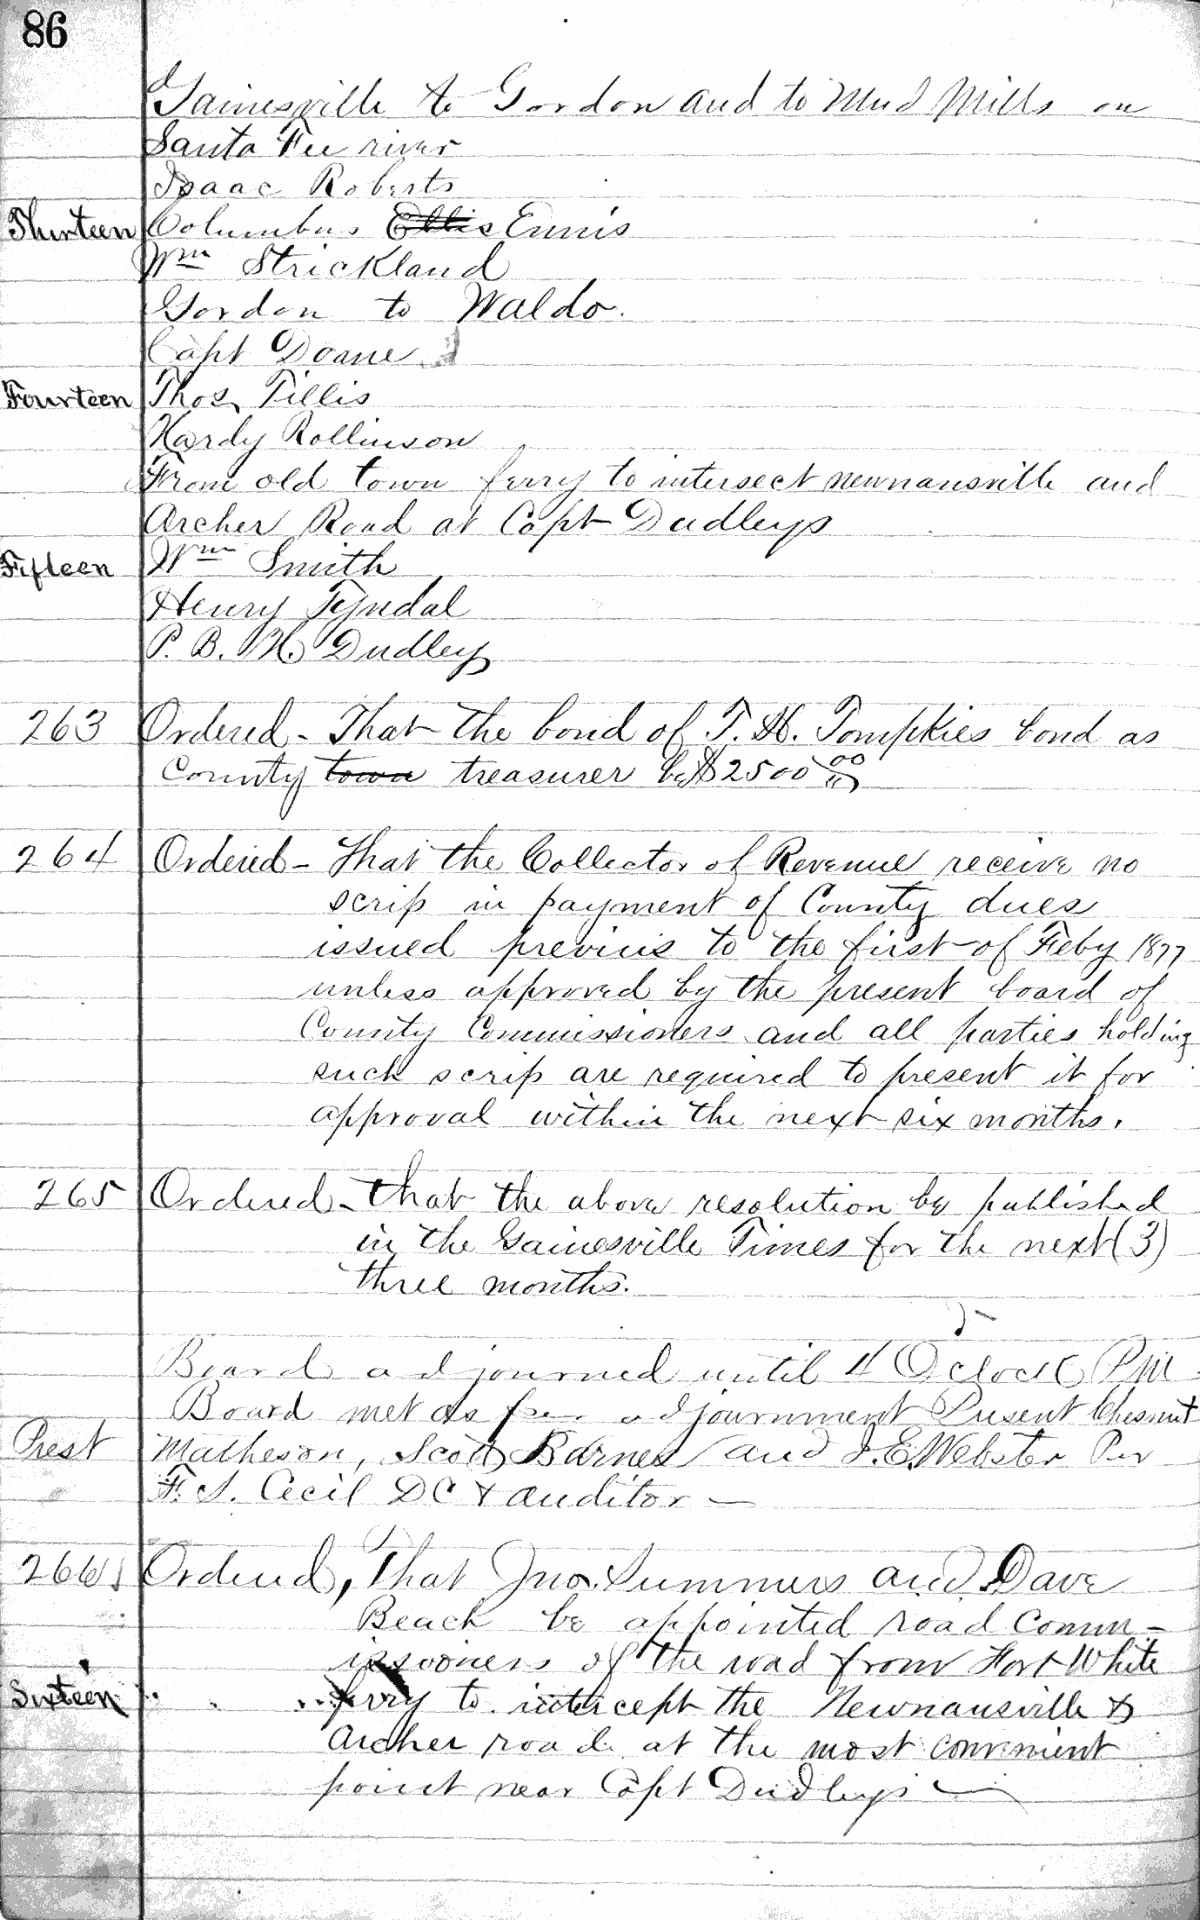 86
Gainesville to Gordon and to Mud Mills on
Santa Fee river
Isaac Roberts
Thirteen Columbus Ellis Ennis
Wm Strickland
Gordon to Waldo.
Capt Doane
Fourteen Thos. Tillis
Hardy Rollinson
From old town ferry to intersect newnansville and
Archer Road at Capt Dudleys
Fifteen Wm Smith
Henry Tyndal
P. B. H. Dudley
263 Ordered - That the bond of T. H. Tompkies bond as
County town treasurer be $2500 00
264 Ordered - That the Collector of Revenue receive no
scrip in payment of County dues
issued previus to the first of Feby 1877
unless approved by the present board of
County Commissioners and all parties holding
such scrip are required to present it for
approval within the next six months.
265 Ordered - that the above resolution be published
in the Gainesville Times for the next (3)
three months.
Board adjourned until 4 Oclock PM
Board met as per adjournment Present Chesnut
Prest Matheson, Scott Barnes and J. E. Webster Per
F. S. Cecil DC & auditor —
266 Ordered, That Jno. Summers and Dave
Beach be appointed road Comm-
issioners of the road from Fort White
Sixteen ferry to intercept the Newnansville &
Archer road at the most convenient
point near Capt Dudleys —